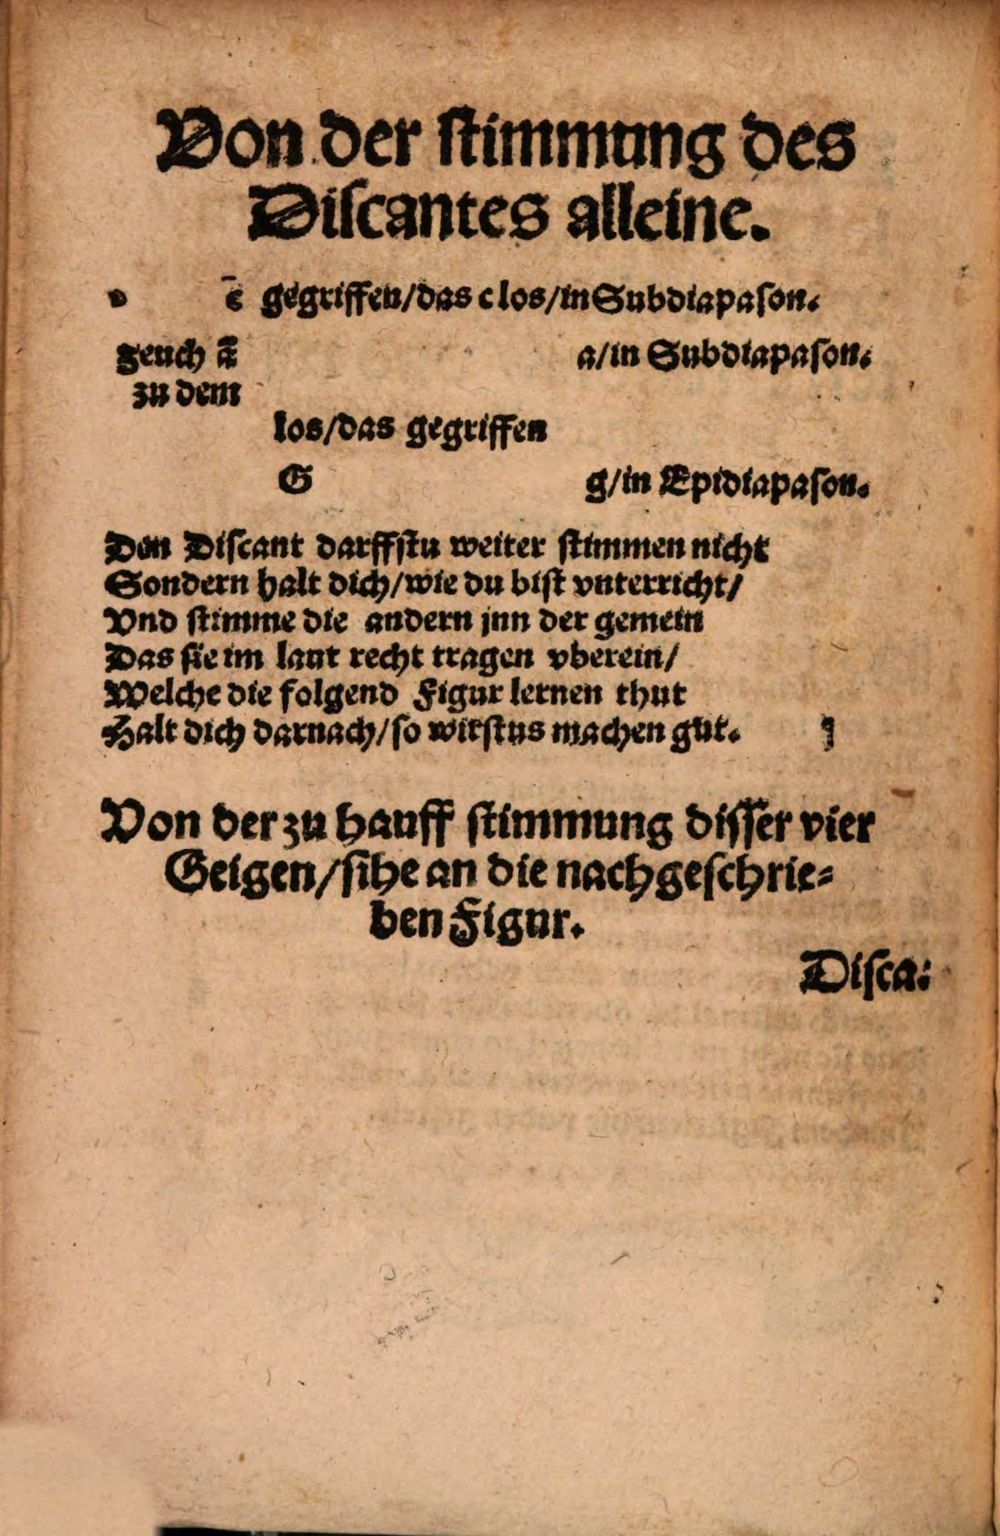 Von der stimmung des
Discantes alleine.
ē gegriffen/das c los/in Subdiapason.
zeuch ā a/in Subdiapason.
zu dem
los/das gegriffen
G g/in Epidiapason.
Den Discant darffstu weiter stimmen nicht
Sondern halt dich/wie du bist vnterricht/
Vnd stimme die andern jnn der gemein
Das sie im laut recht tragen vberein/
Welche die folgend Figur lernen thut
Halt dich darnach/so wirstus machen gut.
Von der zu hauff stimmung disser vier
Geigen/sihe an die nachgeschrie⸗
ben Figur.
Disca⸗